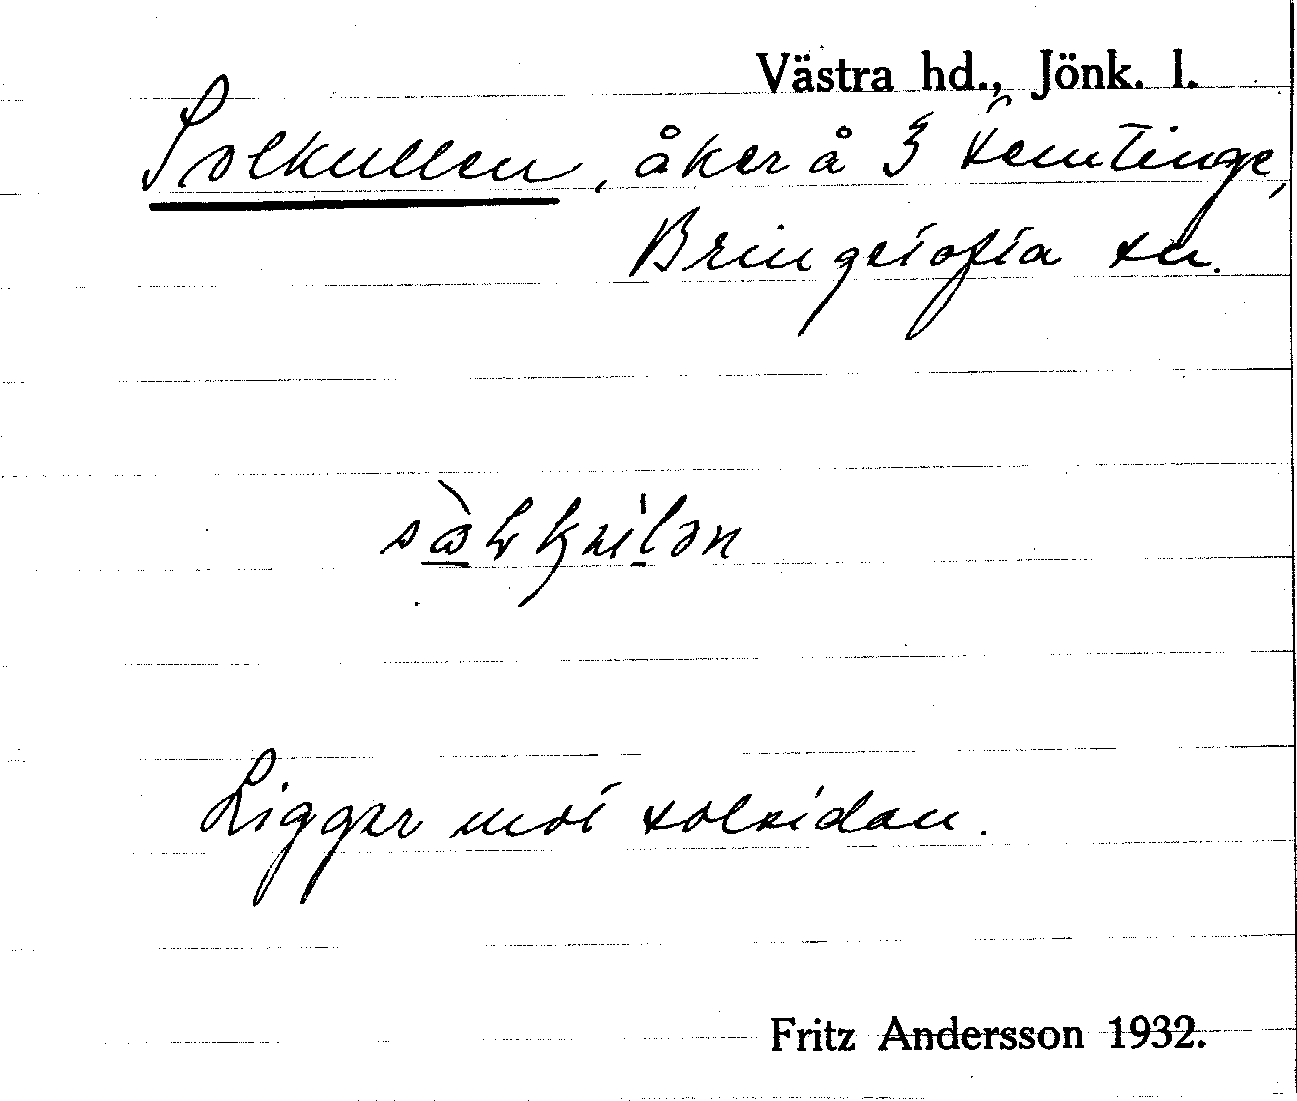 Västra hd., Jönk. l.
Solkullen, åker å Femtinge,
Bringetofta sn.
Ligger mot solsidan.
Fritz Andersson 1932.